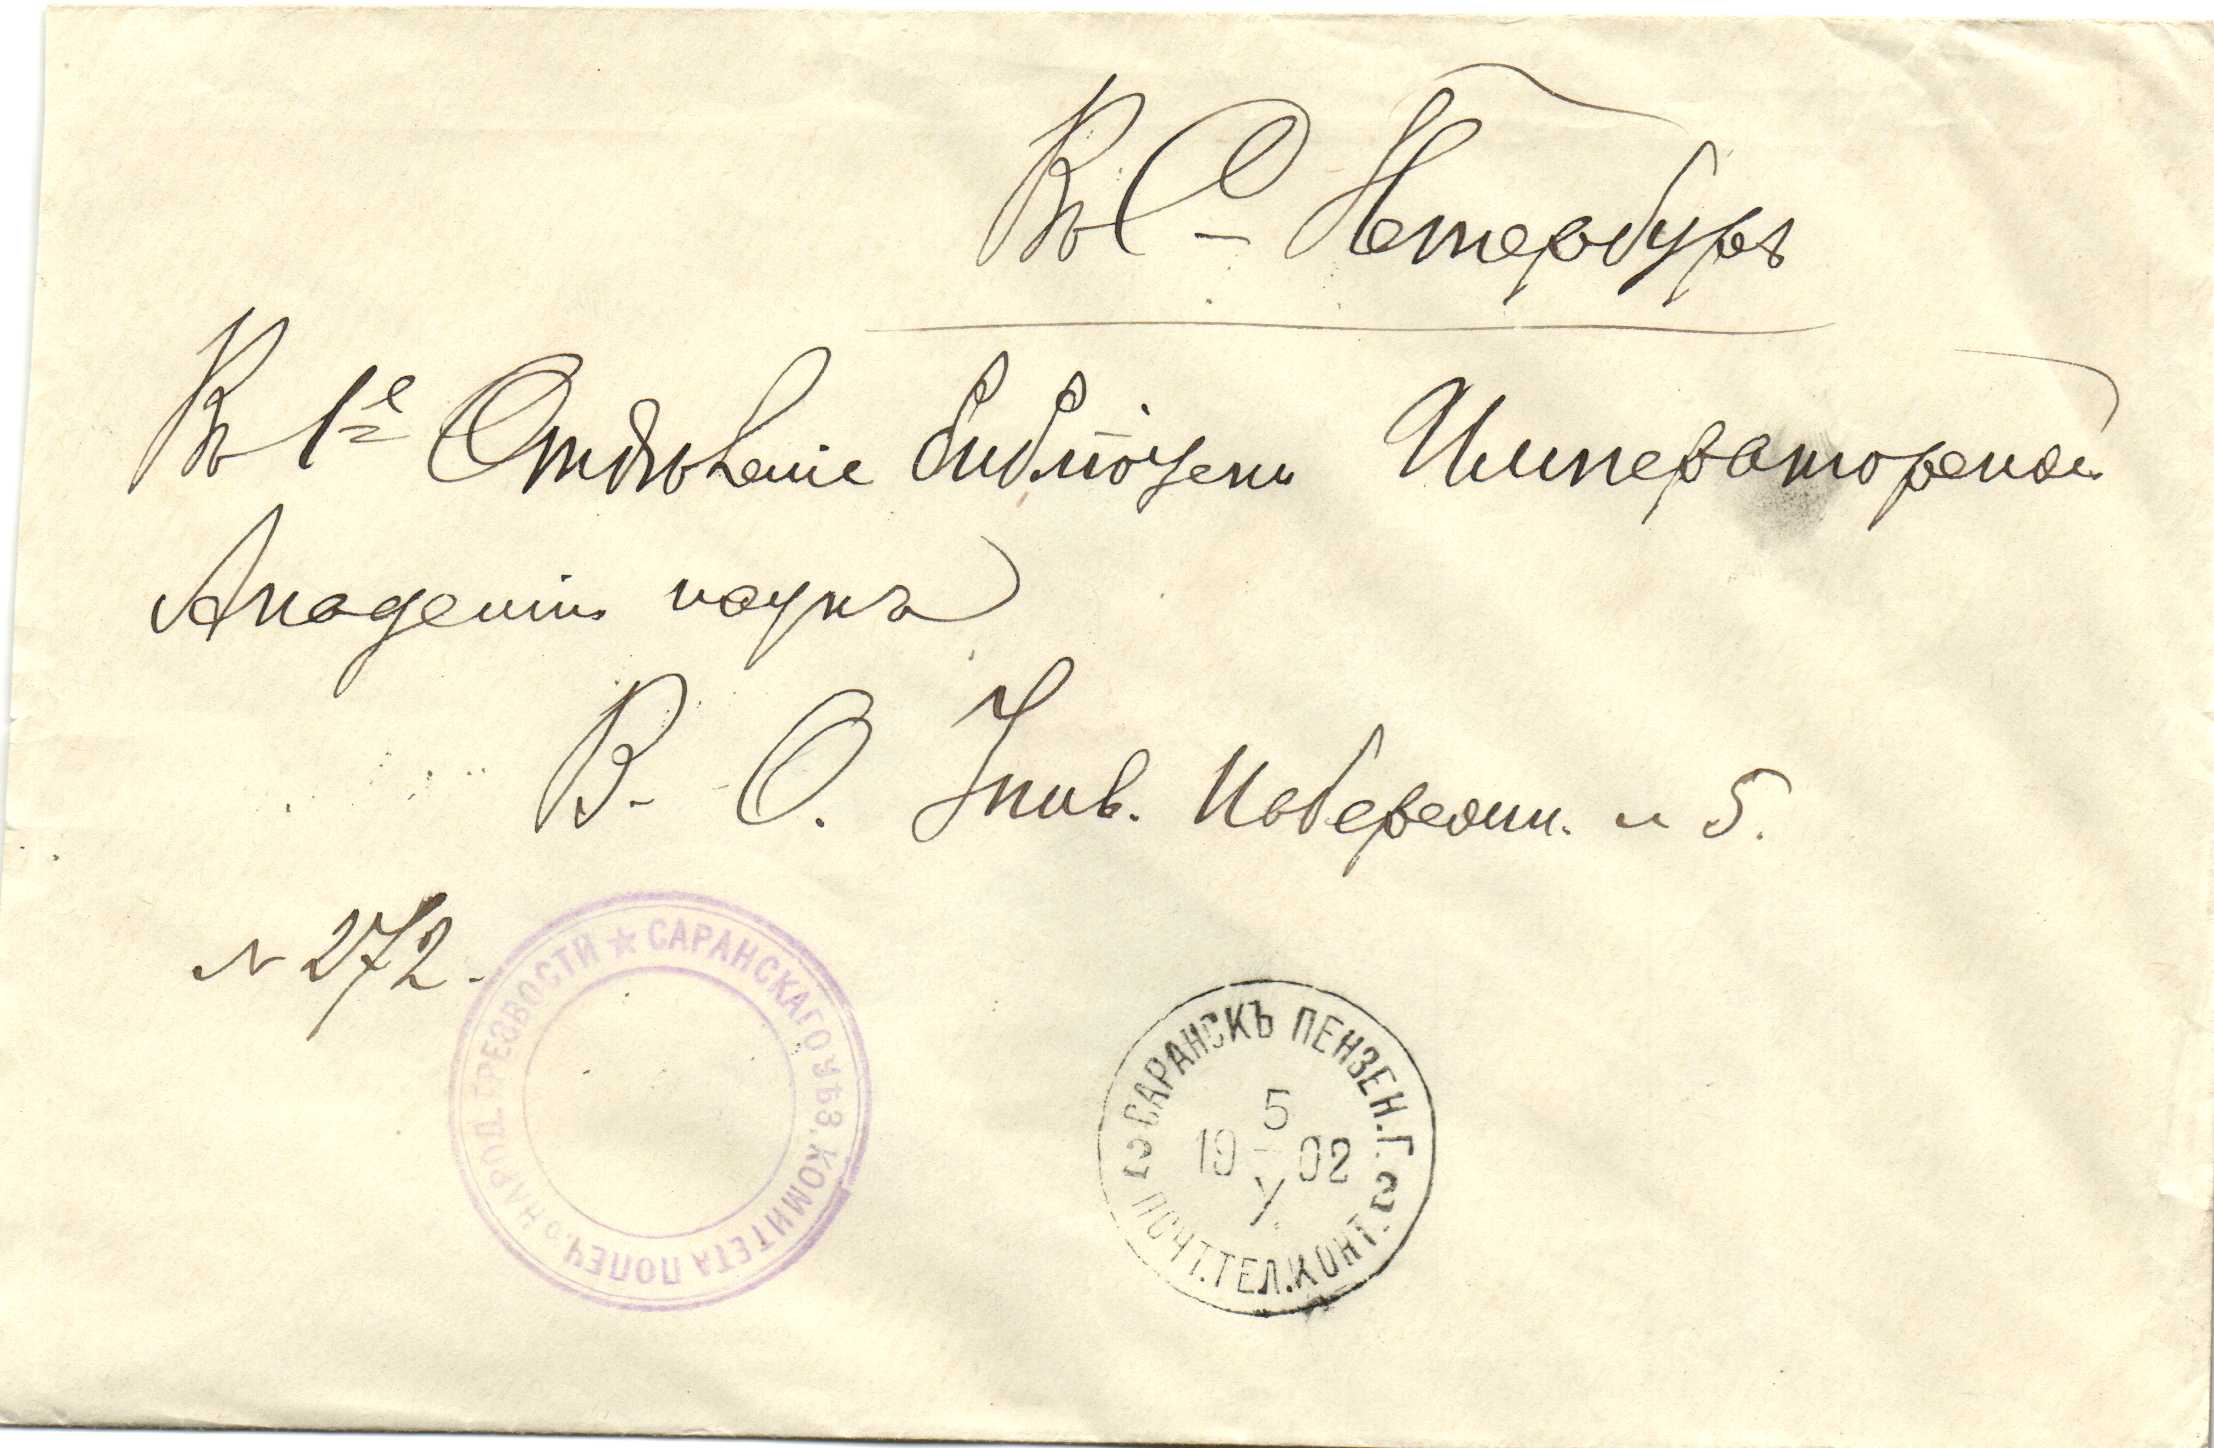 Въ С-Петербургъ
Въ 1е Отдѣленіе библіотеки Императорской
Академіи наукъ
В. О. Унив. Набережн. № 5.
№ 272.
САРАНСКАГО УѢЗ. КОМИТЕТА ПОПЕЧ. О НАРОД. ТРЕЗВОСТИ
САРАНСКЪ ПЕНЗЕН. Г.
5
19 02
V
ПОЧТ. ТЕЛ. КОНТ.